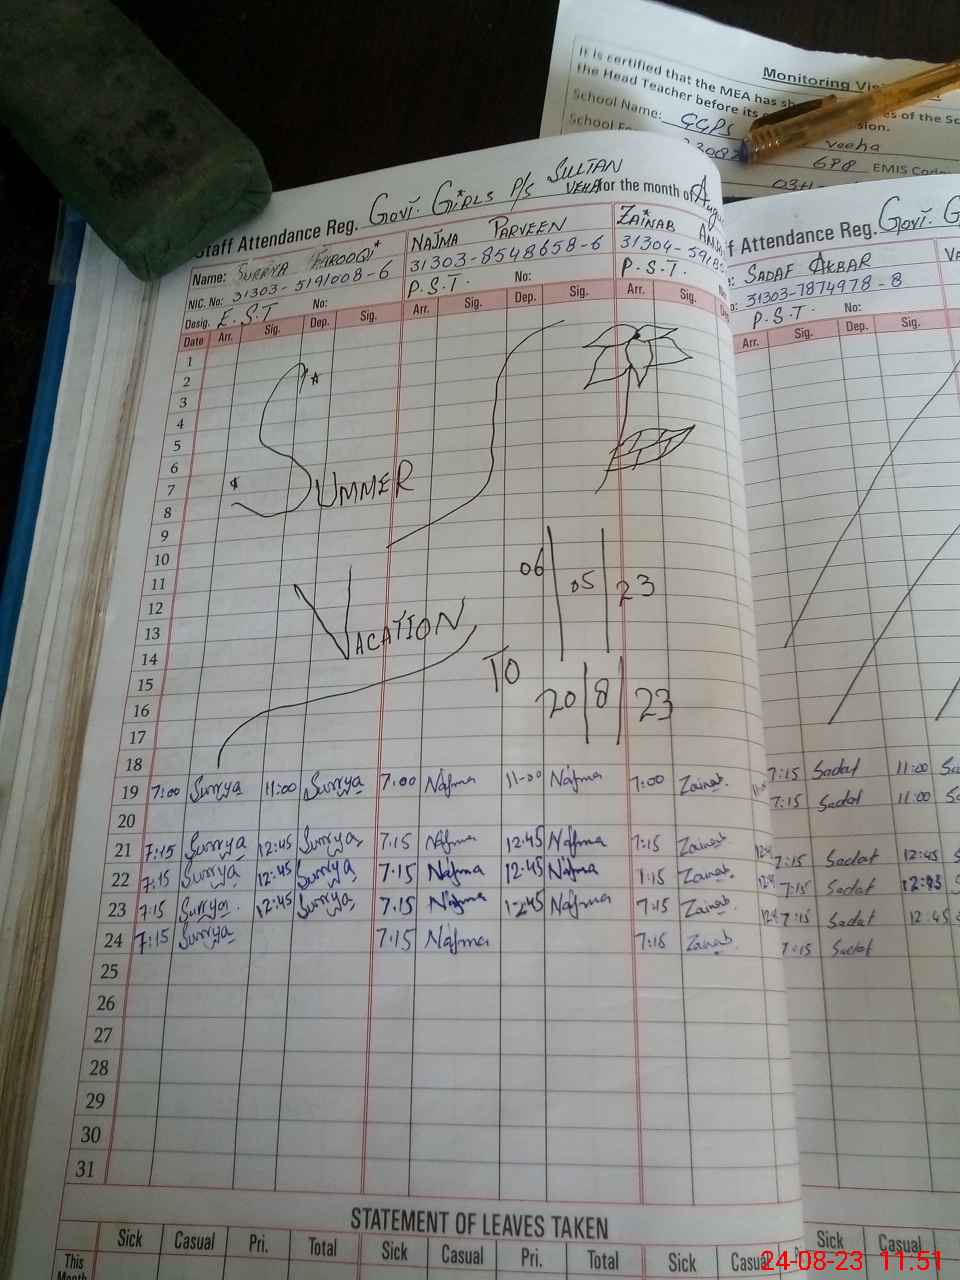 Monitoring Vis
It is certified that the MEA has sh es of the Sc
the Head Teacher before its sion.
School Name: GGPS veeha
School
678 EMIS Code
Staff Attendance Reg. Govt. Girls P/S Sultan Veha for the month of Augu
Name: Surrya Farooqi Najma Parveen Zainab
NIC. No: 31303-5191008-6 31303-8548658-6 31304-
Desig. E.S.T No: P.S.T. No: P.S.T.
Date Arr. Sig. Dep. Sig. Arr. Sig. Dep. Sig. Arr. Sig.
f Attendance Reg. Govt. G
Sadaf Akbar
31303-7874978-8
P.S.T. No:
Arr. Sig. Dep. Sig.
1
2
3
4
5
6
7
8
Summer
9
10
11
06 05 23
12
13
Vacation
14
15
To
16
20 8 23
17
18
19 7:00 Surrya 11:00 Surrya 7:00 Najma 11-00 Najma 7:00 Zainab 7:15 Sadaf 11:00 Sa
20 7:15 Sadaf 11:00
21 7:15 Surrya 12:45 Surrya 7:15 Najma 12:45 Najma 7:15 Zainab 7:15 Sadaf 12:45
22 7:15 Surrya 12:45 Surrya 7:15 Najma 12:45 Najma 7:15 Zainab 7:15 Sadaf 12:45
23 7:15 Surrya 12:45 Surrya 7:15 Najma 12:45 Najma 7:15 Zainab 7:15 Sadaf 12:45
24 7:15 Surrya 7:15 Najma 7:15 Zainab 7:15 Sadaf
25
26
27
28
29
30
31
STATEMENT OF LEAVES TAKEN
Sick Casual Pri. Total Sick Casual Pri. Total Sick Casual Sick Casual
This
Month
24-08-23 11:51